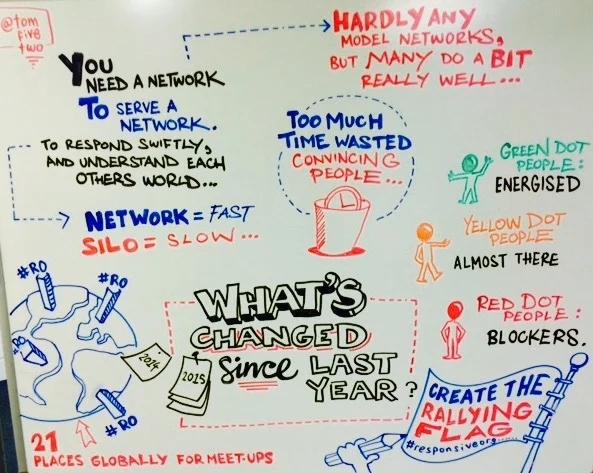 @tom
five
two
YOU
NEED A NETWORK
TO SERVE A
NETWORK.
TO RESPOND SWIFTLY,
AND UNDERSTAND EACH
OTHERS WORLD...
NETWORK = FAST
SILO = SLOW...
HARDLY ANY
MODEL NETWORKS,
BUT MANY DO A BIT
REALLY WELL...
TOO MUCH
TIME WASTED
CONVINCING
PEOPLE...
GREEN DOT
PEOPLE:
ENERGISED
YELLOW DOT
PEOPLE
ALMOST THERE
RED DOT
PEOPLE:
BLOCKERS.
#RO
#RO
#RO
#RO
21
PLACES GLOBALLY FOR MEET-UPS
2014
2015
WHAT'S
CHANGED
Since LAST
YEAR?
CREATE THE
RALLYING
FLAG
#responsiveorg...